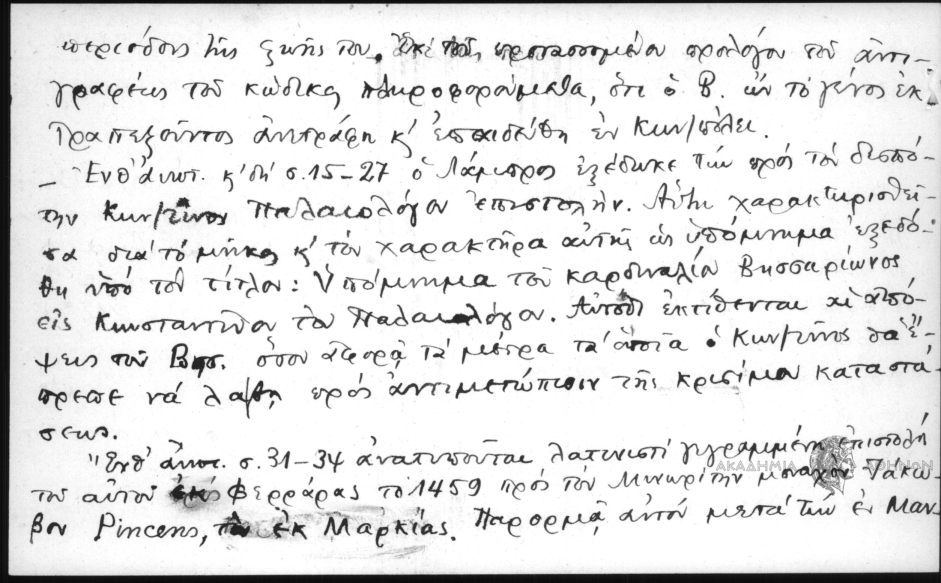 περιόδους τῆς ζωῆς του. Ἐκ τοῦ προτασσομένου προλόγου τοῦ ἀντι-
γραφέως τοῦ κώδικος πληροφορούμεθα, ὅτι ὁ Β. ὢν τὸ γένος ἐκ
Τραπεζοῦντος ἀνετράφη κ' ἐπαιδεύθη ἐν Κων/πόλει.
– Ἔνθ' ἀνωτ. κ' δὴ σ. 15–27 ὁ Λάμπρος ἐξέδωκε τὴν πρὸς τὸν δεσπό-
την Κων/τῖνον Παλαιολόγον ἐπιστολήν. Αὕτη χαρακτηρισθεῖ-
σα διὰ τὸ μῆκος κ' τὸν χαρακτῆρα αὐτῆς ὡς ὑπόμνημα ἐξεδό-
θη ὑπὸ τὸν τίτλον: Ὑπόμνημα τοῦ καρδιναλίου Βησσαρίωνος
εἰς Κωνσταντῖνον τὸν Παλαιολόγον. Αὐτόθι ἐκτίθενται αἱ ἀπό-
ψεις τοῦ Βησ. ὅσον ἀφορᾷ τὰ μέτρα τὰ ὁποῖα ὁ Κων/τῖνος θὰ ἔ-
πρεπε νὰ λάβῃ πρὸς ἀντιμετώπισιν τῆς κρισίμου καταστά-
σεως.
Ἔνθ' ἀνωτ. σ. 31–34 ἀνατυποῦται λατινιστὶ γεγραμμένη ἐπιστολὴ
τοῦ αὐτοῦ ἐκ Φερράρας τὸ 1459 πρὸς τὸν Μινωρίτην μοναχὸν Ἰάκω-
βον Pincens, ἐκ Μαρκίας. Παρορμᾷ αὐτὸν μετὰ τῶν ἐν Μαν-
ΑΚΑΔΗΜΙΑ ΑΘΗΝΩΝ